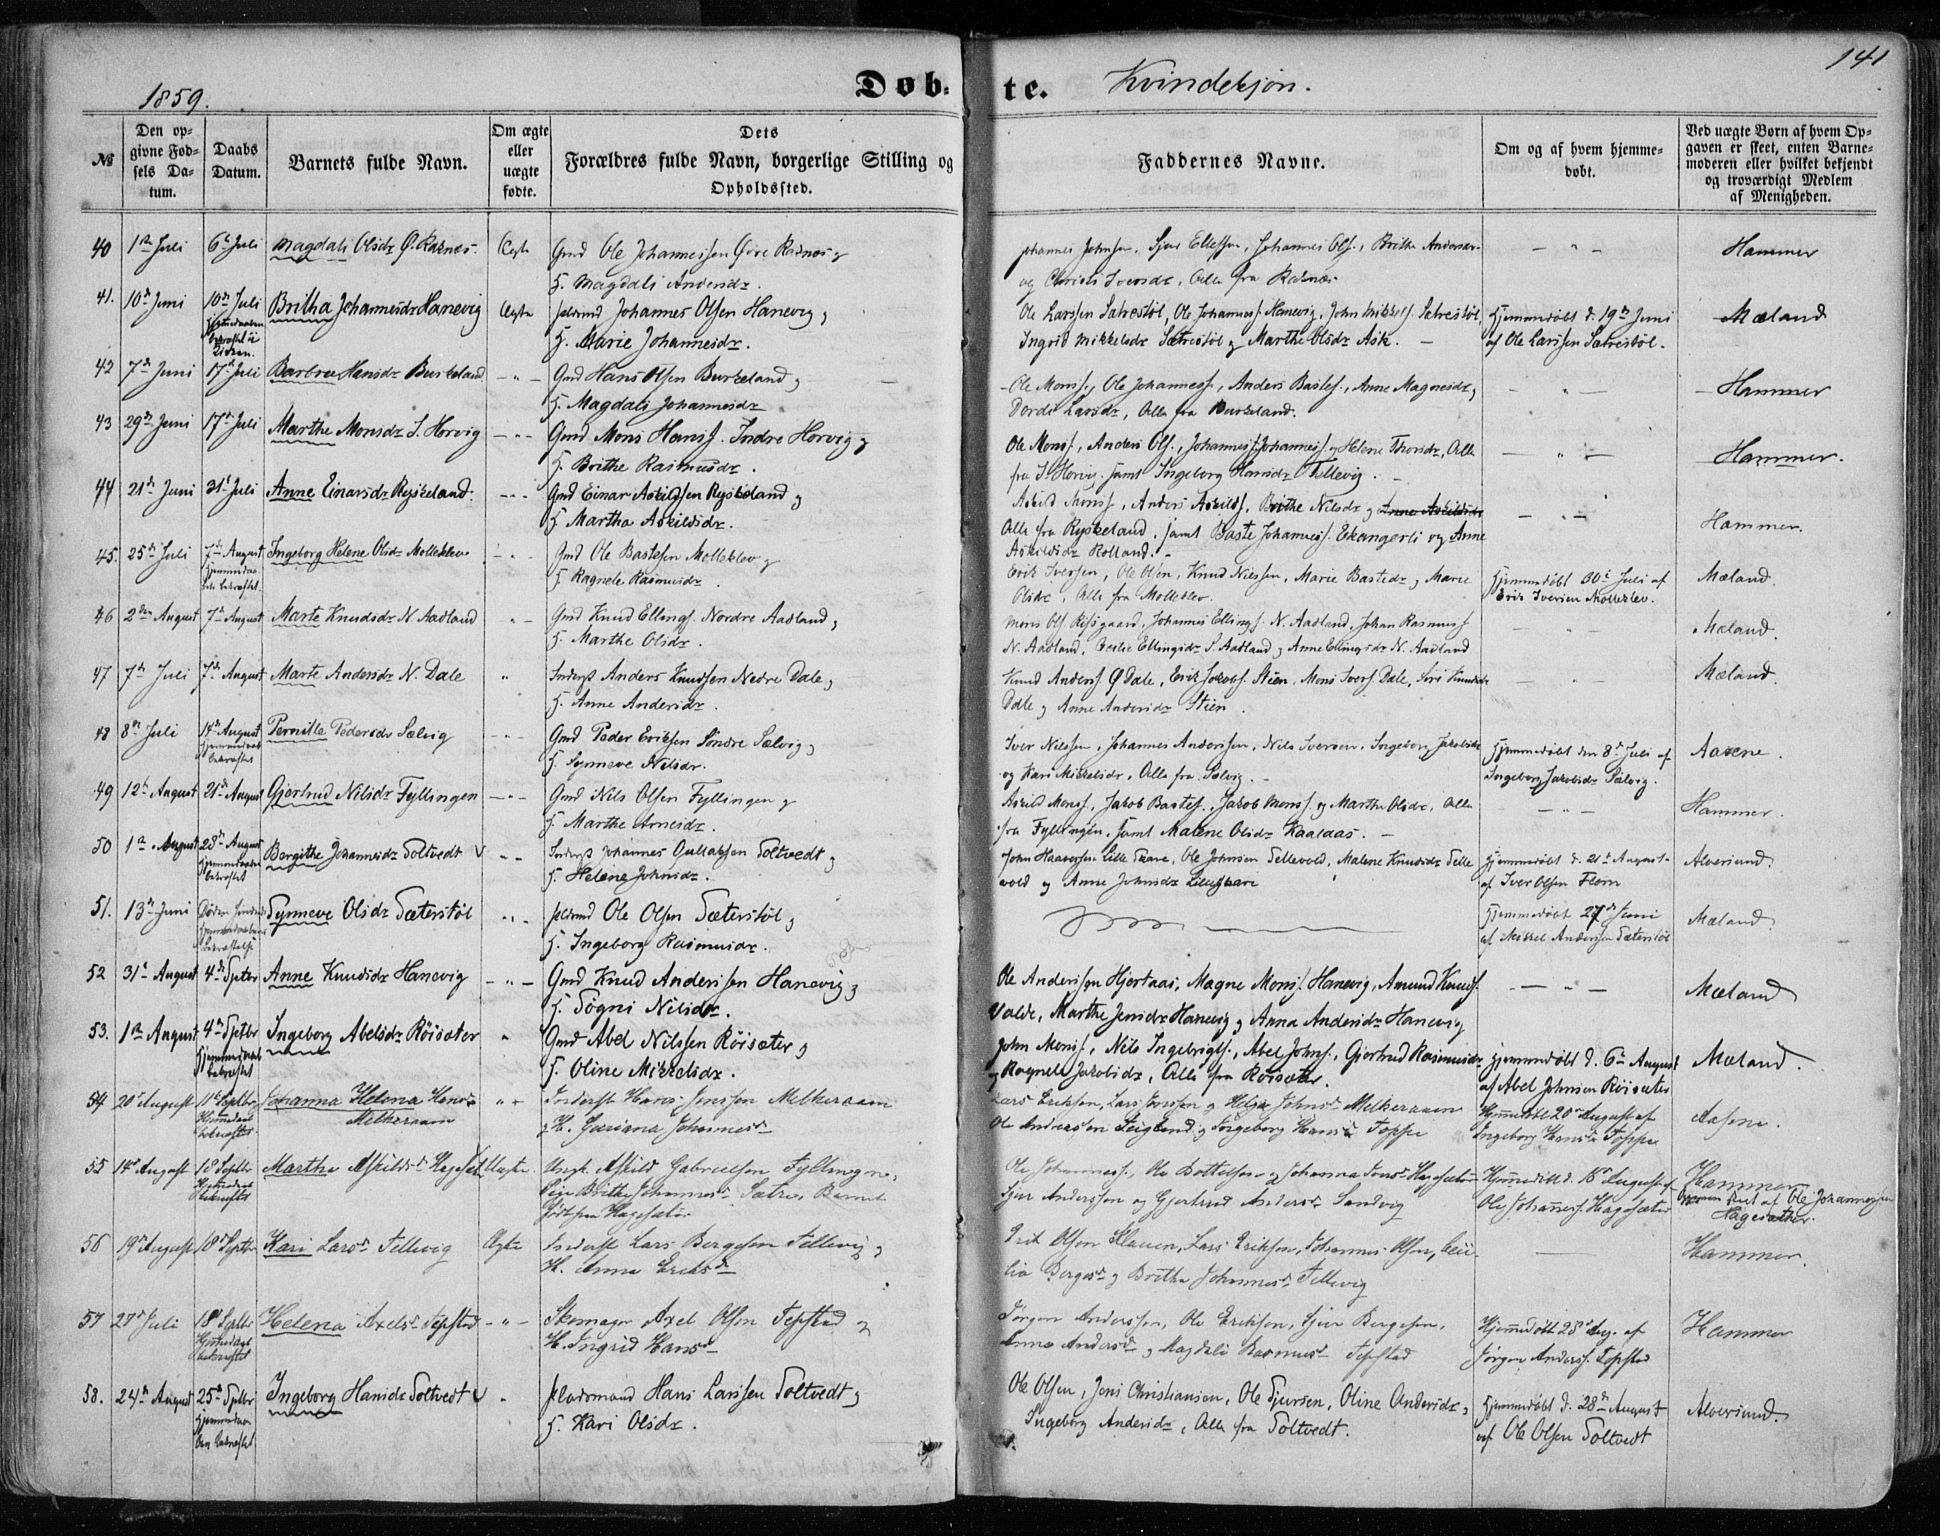 141
1859.
Døb-te. Kvindekjøn.
№
Den op-
givne Fød-
sels Da-
tum.
Daabs
Datum.
Barnets fulde Navn.
Om ægte
eller
uægte
fødte.
Dets
Forældres fulde Navn, borgerlige Stilling og
Opholdssted.
Faddernes Navne.
Om og af hvem hjemme-
døbt.
Ved uægte Børn af hvem Op-
gaven er skeet, enten Barne-
moderen eller hvilket bekjendt
og troværdigt Medlem
af Menigheden.
40 1ste Juli 6te Juli Magdali Olsdr Ø. Raknes Ægte Gmd Ole Johannessen Øvre Raknes og
H. Magdali Andersdr.
Johannes Johnsen, Sjur Ellefsen, Johannes Ols., Brithe Andersdr
og Christi Iversdr, Alle fra Raknes
— " — Hammer
41. 10de Juni 10de Juli Britha Johannesdr Hanevig Ægte Johannes Olsen Hanevig,
bekræftet i
Kirken.
H. Marie Johannesdr.
Ole Larssen Sætrestøl, Ole Johannes. Hanevig, John Mikkels. Sætrestøl,
Ingrid Mikkelsdr Sætrestøl og Marthe Olsdr Ask. —
Hjemmedøbt d. 19de Juni
af Ole Larssen Sætrestøl.
Mæland
42 7de Juni 17de Juli Barbra Hansdr Burkeland — " — Gmd Hans Olsen Burkeland og
H. Magdali Johannesdr
Ole Monss., Ole Johanness., Anders Bastes., Anne Magnesdr,
Dorde Larsdr, Alle fra Burkeland.
— " — Hammer
43 29de Juni 17de Juli Marthe Monsdr I. Horvig — " — Gmd Mons Hanss. Indre Horvig og
H. Brithe Rasmusdr.
Ole Monss., Anders Ols., Johannes Johanness. og Helene Thorsdr, Alle
fra I. Horvig, samt Ingeborg Hansdr Tellevig. —
— " — Hammer.
44 21de Juni 31te Juli Anne Einarsdr Ryskeland — " — Gmd Einar Askildsen Ryskeland og
H. Martha Askildsdr.
Askild Monss., Anders Askilds., Brithe Nilsdr og Anne Askildsdr
Alle fra Ryskeland, samt Baste Johanness. Ekangerli og Anne
Askildsdr Rolland. —
— " — Hammer.
45. 25de Juli 7de August Ingeborg Helene Olsdr Molleklev — " — Gmd Ole Bastesen Molleklev og
H. Ragnele Rasmusdr.
Erik Iversen, Ole Olsen, Knud Nilssen, Marie Bastedr og Marie
Olsdr, Alle fra Molleklev.
Hjemmedøbt 30te Juli af
Erik Iversen Molleklev.
Mæland.
46 2den August 7de August Marte Knudsdr N. Aadland " — Gmd Knud Ellings. Nordre Aadland,
H. Marthe Olsdr.
Mons Ols. Refsgaard, Johannes Ellings. N. Aadland, Johan Rasmuss.
N. Aadland, Ellingsdr S. Aadland og Anne Ellingsdr N. Aadland
— " — Mæland.
47 7de Juli 7de August Marte Andersdr N. Dale " Inderst Anders Knudsen Nedre Dale,
H. Anne Andersdr.
Knud Anderss. Ø Dale, Erik Jakobs. Stien, Mons Ivers. Dale, Siri Knudsdr
Dale og Anne Andersdr Stien.
— " — Mæland.
48 8de Juli 14de August Pernille Pedersdr Sælvig — " — Gmd Peder Eriksen Søndre Sælvig,
bekræftet
H. Synneve Nilsdr.
Iver Nilssen, Johannes Anderssen, Nils Iversen, Ingeborg Jakobsdr
og Kari Mikkelsdr, Alle fra Sælvig. —
Hjemmedøbt den 8de Juli af
Ingeborg Jakobsdr Sælvig.
Aasene
49 12te August 21de August Gjertrud Nilsdr Fyllingen — " — Gmd Nils Olsen Fyllingen og
H. Marthe Arnesdr.
Askild Monss., Jakob Bastes., Jakob Monss. og Marthe Olsdr, Alle
fra Fyllingen, samt Malene Olsdr Kaalaas. —
— " — Hammer.
50 1ste August 28de August Bergithe Johannesdr Toltvedt — Inderst Johannes Gullaksen Toltvedt og
bekræftet
H. Helene Johnsdr.
John Haavorsen Lille Skare, Ole Johnsen Tellevold, Malene Knudsdr Telle
vold og Anne Johnsdr Lilleskare
Hjemmedøbt d. 21de August
af Iver Olsen Flom
Alversund.
51. 13de Juni Synneve Olsdr Sæterstøl — " — Ole Olsen Sæterstøl,
H. Ingeborg Rasmusdr.
Hjemmedøbt 27de Juni
af Mikkel Andersen Sæterstøl
Mæland
52 31te August 4de Sptbr Anne Knudsdr Hanevig — " — Gmd Knud Anderssen Hanevig,
H. Sögni Nilsdr.
Ole Anderssen Hjortaas, Magne Monss. Hanevig, Amund Knuds.
Valde, Marthe Jensdr Hanevig og Anna Andersdr Hanevig
— " — Mæland
53. 1ste August 4de Sptbr Ingeborg Abelsdr Röisæter " Gmd Abel Nilssen Röisæter,
bekræftet
H. Oline Mikkelsdr.
John Monss., Nils Ingebrigts., Abel Johns., Gjertrud Rasmusdr
og Ragnele Jakobsdr, Alle fra Röisæter.
Hjemmedøbt d. 6te August
af Abel Johnsen Röisæter
Mæland.
54 20de August 11te Septbr Johanna Helena Hansdr
Melkeraaen
" — Inderst Hans Jenssen Melkeraaen
bekræftet
og H. Guriana Johannesdr
Lars Eriksen, Lars Jonssen og Helga Johnsdr Melkeraaen
Ole Anderssen Leiglend og Ingeborg Hansdr Toppe
Hjemmedøbt 20de August af
Ingeborg Hansdr Toppe
Aasene.
55 14de August 18de Septbr Martha Askildsdr Hagesæt. Uægte. Ungk. Askild Gabrielsen Fyllingen,
Pige Brithe Johannesdr Sætre, Barnet
født paa Hagesæter
bekræftet
Ole Johanness., Ole Bottolfsen og Johanna Jonsdr Hagesæter
Sjur Anderssen og Gjertrud Andersdr Sandvig
Hjemmedøbt d. 15de August af
Ole Johanness. Hagesæter
Hammer
af Ole Johannessen
Hagesæther.
56 19de August 18de Septbr Kari Larsdr Tellevig Ægte Inderst Lars Bergesen Tellevig,
H. Anna Eriksdr
Erik Olsen Slauen, Lars Eriksen, Johannes Olsen, Ceci-
lia Bergesdr og Britha Johannesdr Tellevig
— Hammer.
57 27de Juli 18de Septbr Helena Axelsdr Tepstad — " — Skomager Axel Olsen Tepstad og
bekræftet
H. Ingrid Hansdr
Jørgen Anderssen, Ole Eriksen, Sjur Bergesen,
Anna Andersdr og Magdeli Rasmusdr Tepstad
Hjemmedøbt 28de Aug. af
Jørgen Anderss. Tepstad
Hammer
58. 24de August 25de Sptbr Ingeborg Hansdr Toltvedt " Pladsmand Hans Larssen Toltvedt,
bekræftet
H. Kari Olsdr.
Ole Olsen, Jens Christiansen, Ole Sjursen, Oline Andersdr,
Ingeborg Andersdr, Alle fra Toltvedt.
Hjemmedøbt d. 28de August
af Ole Olsen Toltvedt
Alversund.